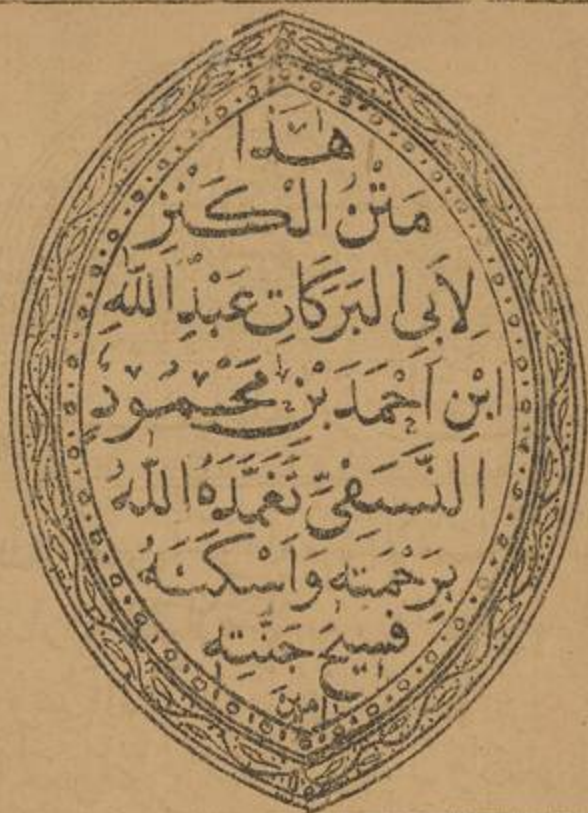 هَذَا
مَتْنُ الْكَنْزِ
لِأَبِي الْبَرَكَاتِ عَبْدِ اللهِ
ابْنِ أَحْمَدَ بْنِ مَحْمُودٍ
النَّسَفِيِّ تَغَمَّدَهُ اللهُ
بِرَحْمَتِهِ وَأَسْكَنَهُ
فَسِيحَ جَنَّتِهِ
آمِينَ